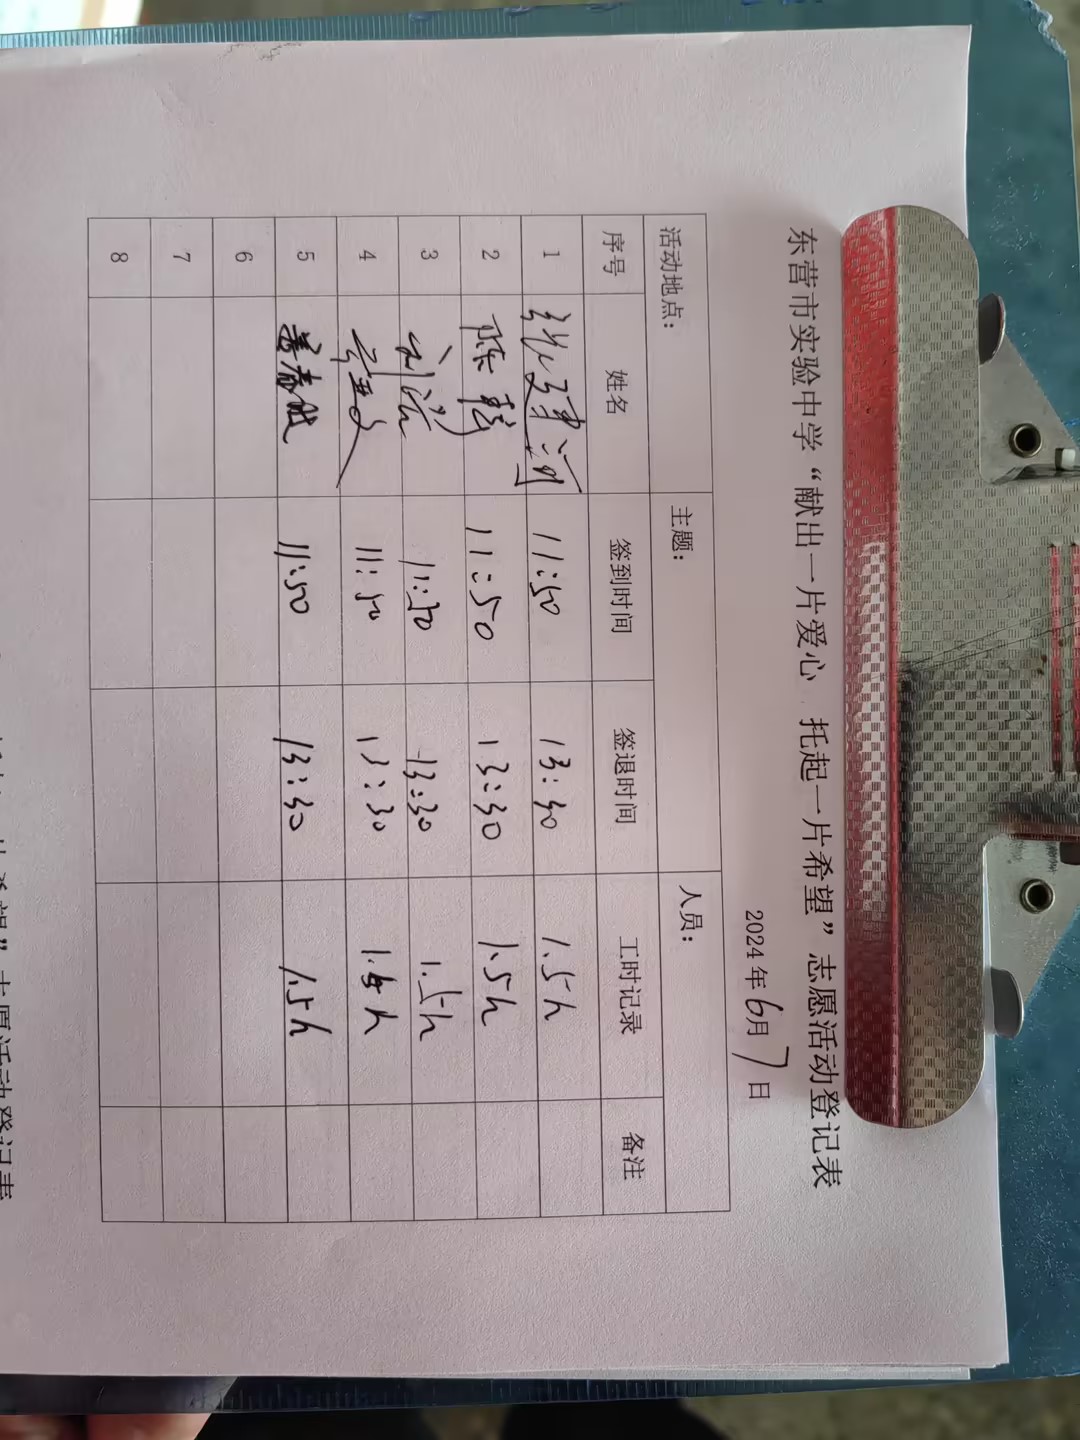 东营市实验中学“献出一片爱心 托起一片希望”志愿活动登记表
2024年6月7日
活动地点： 主题： 人员：
序号 姓名 签到时间 签退时间 工时记录 备注
1 张建河 11:50 13:30 1.5h
2 陈 11:50 13:30 1.5h
3 刘浩 11:50 13:30 1.5h
4 11:50 13:30 1.5h
5 姜春波 11:50 13:30 1.5h
6
7
8
片希望”志愿活动登记表